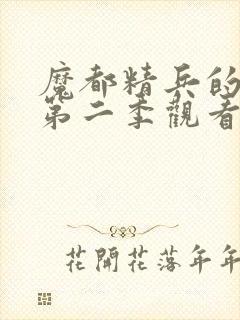 魔都精兵的
第二季觀看
花開花落年年